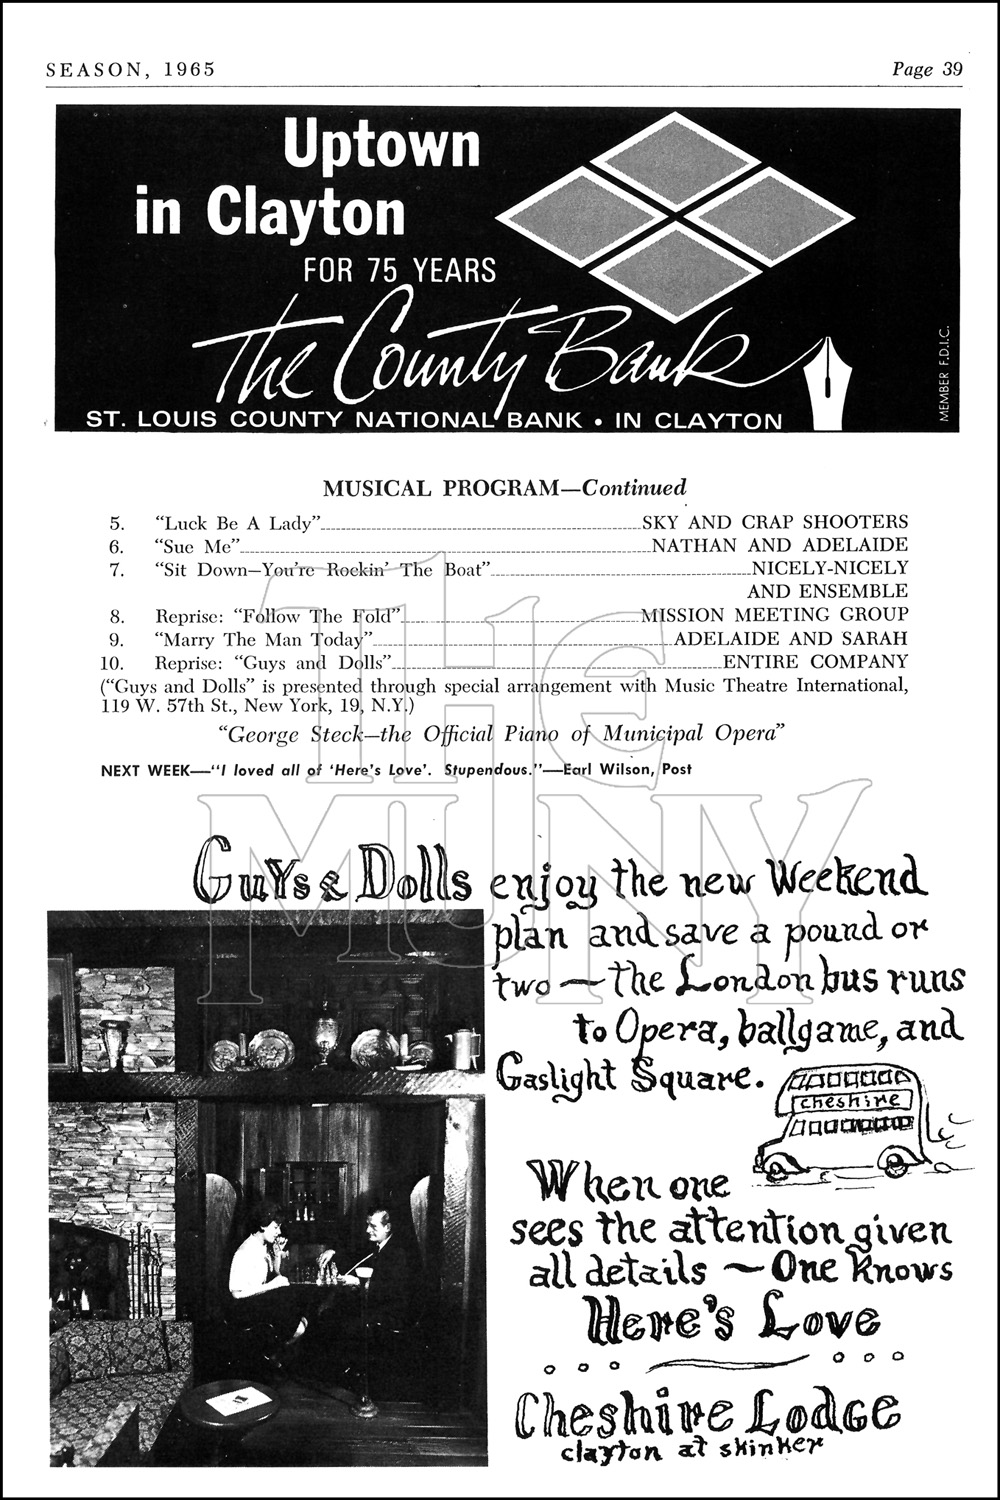 SEASON, 1965 Page 39
Uptown
in Clayton
FOR 75 YEARS
The County Bank
ST. LOUIS COUNTY NATIONAL BANK • IN CLAYTON
MEMBER F.D.I.C.
MUSICAL PROGRAM—Continued
5. “Luck Be A Lady” SKY AND CRAP SHOOTERS
6. “Sue Me” NATHAN AND ADELAIDE
7. “Sit Down—You’re Rockin’ The Boat” NICELY-NICELY
AND ENSEMBLE
8. Reprise: “Follow The Fold” MISSION MEETING GROUP
9. “Marry The Man Today” ADELAIDE AND SARAH
10. Reprise: “Guys and Dolls” ENTIRE COMPANY
(“Guys and Dolls” is presented through special arrangement with Music Theatre International,
119 W. 57th St., New York, 19, N.Y.)
“George Steck—the Official Piano of Municipal Opera”
NEXT WEEK—“I loved all of ‘Here’s Love’. Stupendous.”—Earl Wilson, Post
THE
MUNY
Guys & Dolls enjoy the new Weekend
plan and save a pound or
two — the London bus runs
to Opera, ballgame, and
Gaslight Square.
cheshire
When one
sees the attention given
all details — One knows
Here's Love
Cheshire Lodge
clayton at skinker